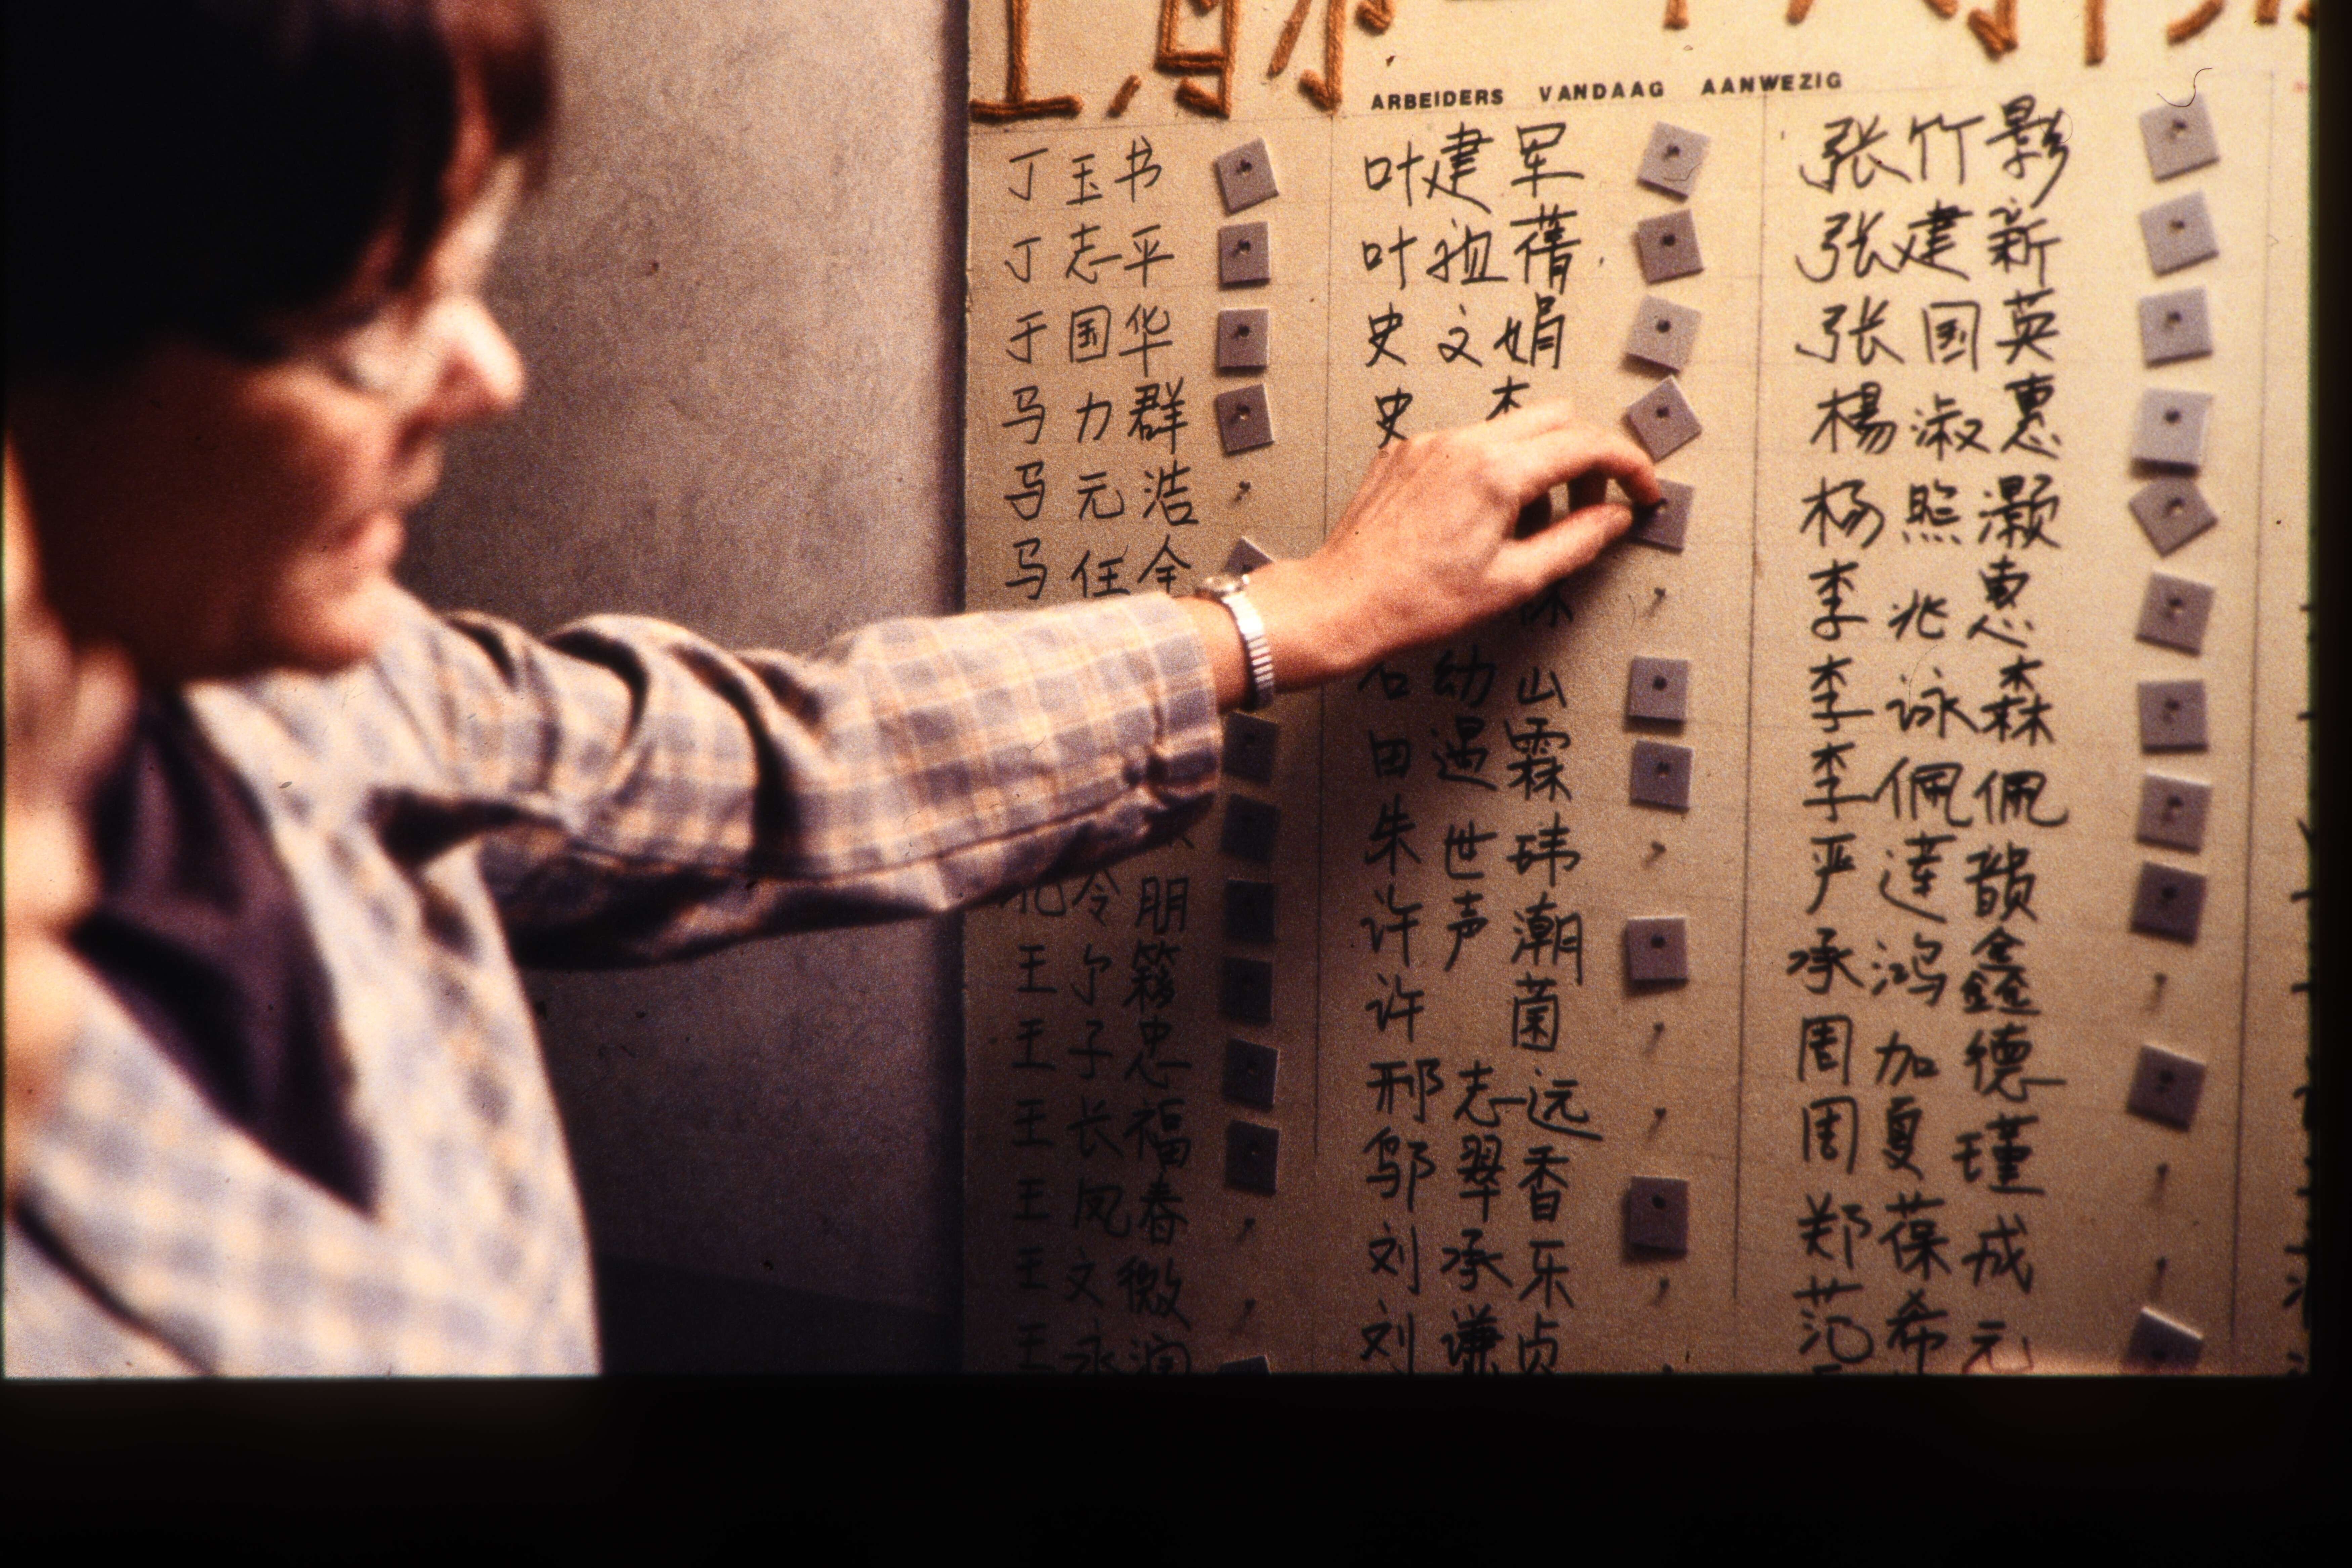 ARBEIDERS VANDAAG AANWEZIG
丁玉书
丁志平
于国华
马力群
马元浩
马任全
令朋
王尔
王子忠
王长福
王凤春
王文微
王永润
叶建军
叶
史文娟
史
幼山
田遇霖
朱世玮
许声潮
许菌
邢志远
邬翠香
刘承乐
刘谦贞
张竹影
张建新
张国英
楊淑惠
杨熙灏
李兆惠
李詠森
李佩佩
严莲韻
承鸿鑫
周加德
周夏瑾
郑葆成
范希元